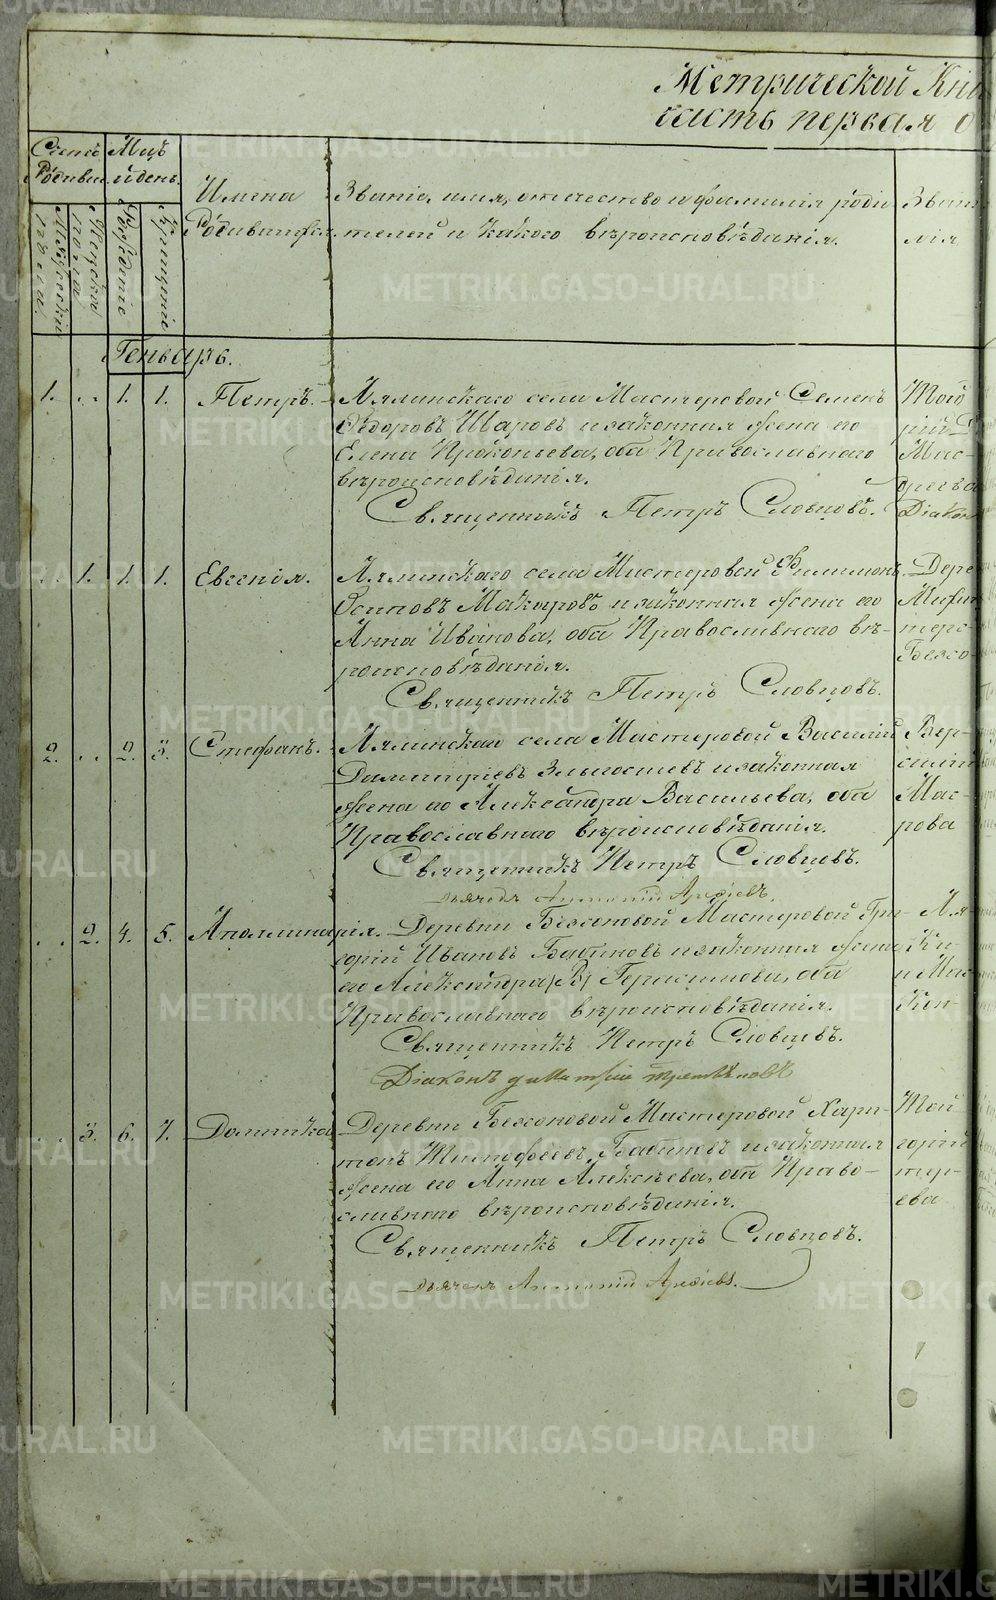 Метрической Кни
часть первая о
Счетъ Родивш.
Мцъ и день.
Мужескій
полъ
Женскій
полъ
Рожденіе
Крещеніе
Имена
Родившихся
Званіе, имя, отчество и фамилія роди
телей и какого вѣроисповѣданія.
Зван
лія
Генварь.
1. .. 1. 1. Петръ. Лялинскаго села Мастеровой Семенъ Той
Ѳедоровъ Шаровъ и законная жена его
Елена Прокопьева, оба Православнаго Мас-
вѣроисповѣданія.
Священникъ Петръ Словцовъ. Діакон
.. 1. 1. 1. Евгенія. Лялинскаго села Мастеровой Филимонъ Дере
Осиповъ Макаровъ и законная жена его
Анна Иванова, оба Православнаго вѣ- терс
роисповѣданія. Бессо
Священникъ Петръ Словцовъ.
2. .. 2. 3. Стефанъ. Лялинскаго села Мастеровой Василій Вер-
Димитріевъ и законная
жена его Александра Васильева, оба Мас-
Православнаго вѣроисповѣданія. рова
Священникъ Петръ Словцовъ.
дьячекъ Антоній Арефіевъ.
.. 2. 4. 5. Аполлинарія. Деревни Бессоновой Мастеровой Гри- Ля
горій Ивановъ Бабиновъ и законная жена Ки-
его Александра Герасимова, оба и Мас
Православнаго вѣроисповѣданія. Кон
Священникъ Петръ Словцовъ.
Діаконъ Димитрій
.. 3. 6. 7. Домника Деревни Бессоновой Мастеровой Хари- Той
тонъ Тимофеевъ Бабиновъ и законная горій
жена его Анна Алексѣева, оба Право- тер-
славнаго вѣроисповѣданія. ева
Священникъ Петръ Словцовъ.
дьячекъ Антоній Арефіевъ.
METRIKI.GASO-URAL.RU